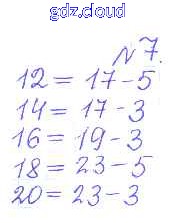 gdz.cloud
№ 7.
12 = 17 - 5
14 = 17 - 3
16 = 19 - 3
18 = 23 - 5
20 = 23 - 3